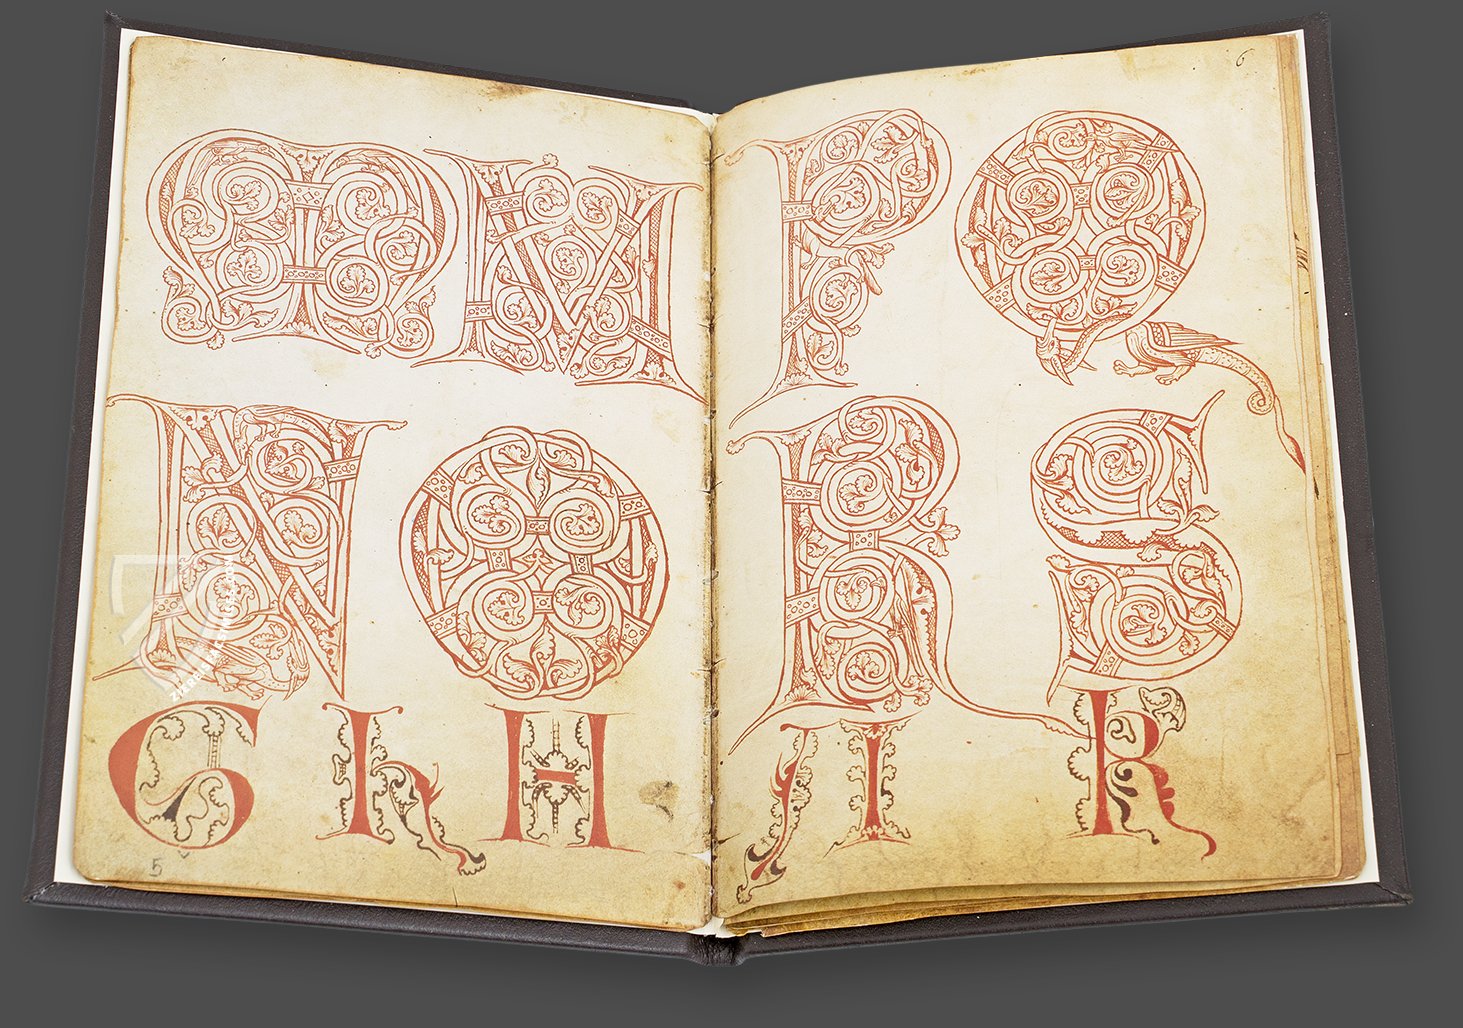 M M
N O
G h H
5
6
P Q
R S
I I R